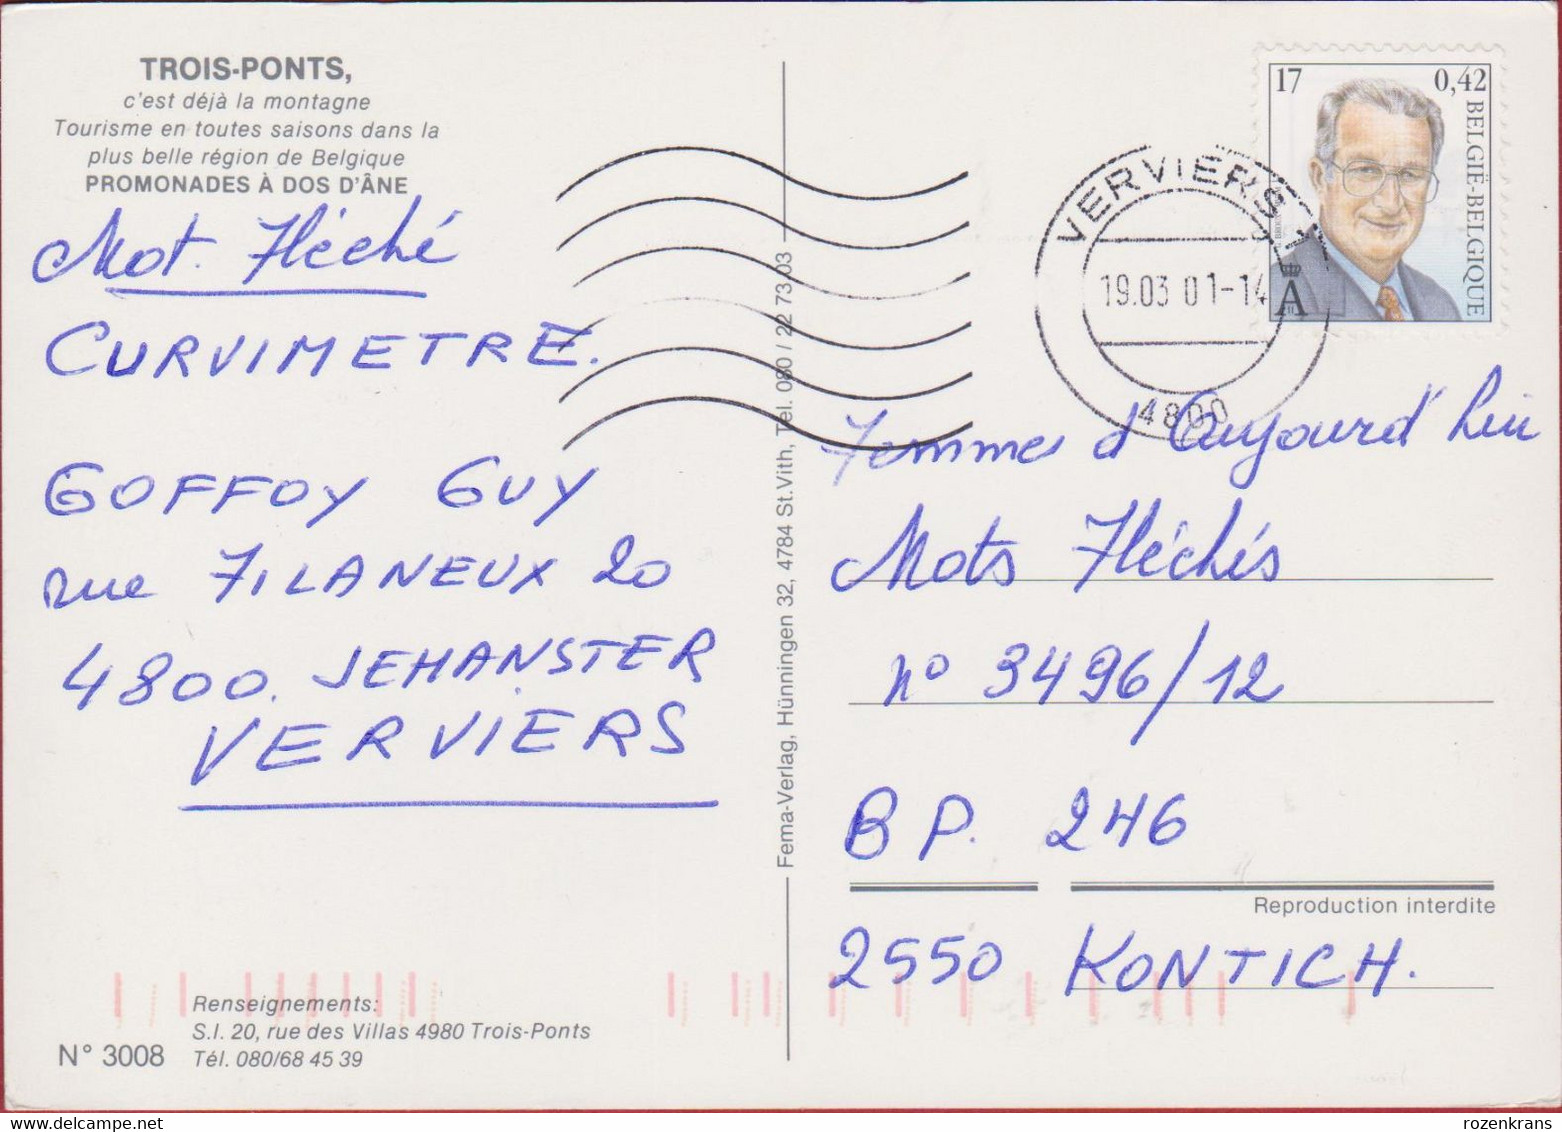 TROIS-PONTS,
c'est déjà la montagne
Tourisme en toutes saisons dans la
plus belle région de Belgique
PROMONADES À DOS D'ÂNE
Mot. Fléché
CURVIMETRE.
GOFFOY GUY
rue FILANEUX 20
4800. JEHANSTER
VERVIERS
Renseignements:
S.I. 20, rue des Villas 4980 Trois-Ponts
N° 3008 Tél. 080/68 45 39
Fema-Verlag, Hünningen 32, 4784 St.Vith, Tel. 080 / 22 73 03
17 0,42
BELGIË-BELGIQUE
A
VERVIERS 1
19.03 01-14
4800
Femmes d'Aujourd'hui
Mots Fléchés
n° 3496/12
BP. 246
Reproduction interdite
2550 KONTICH.
rozenkrans